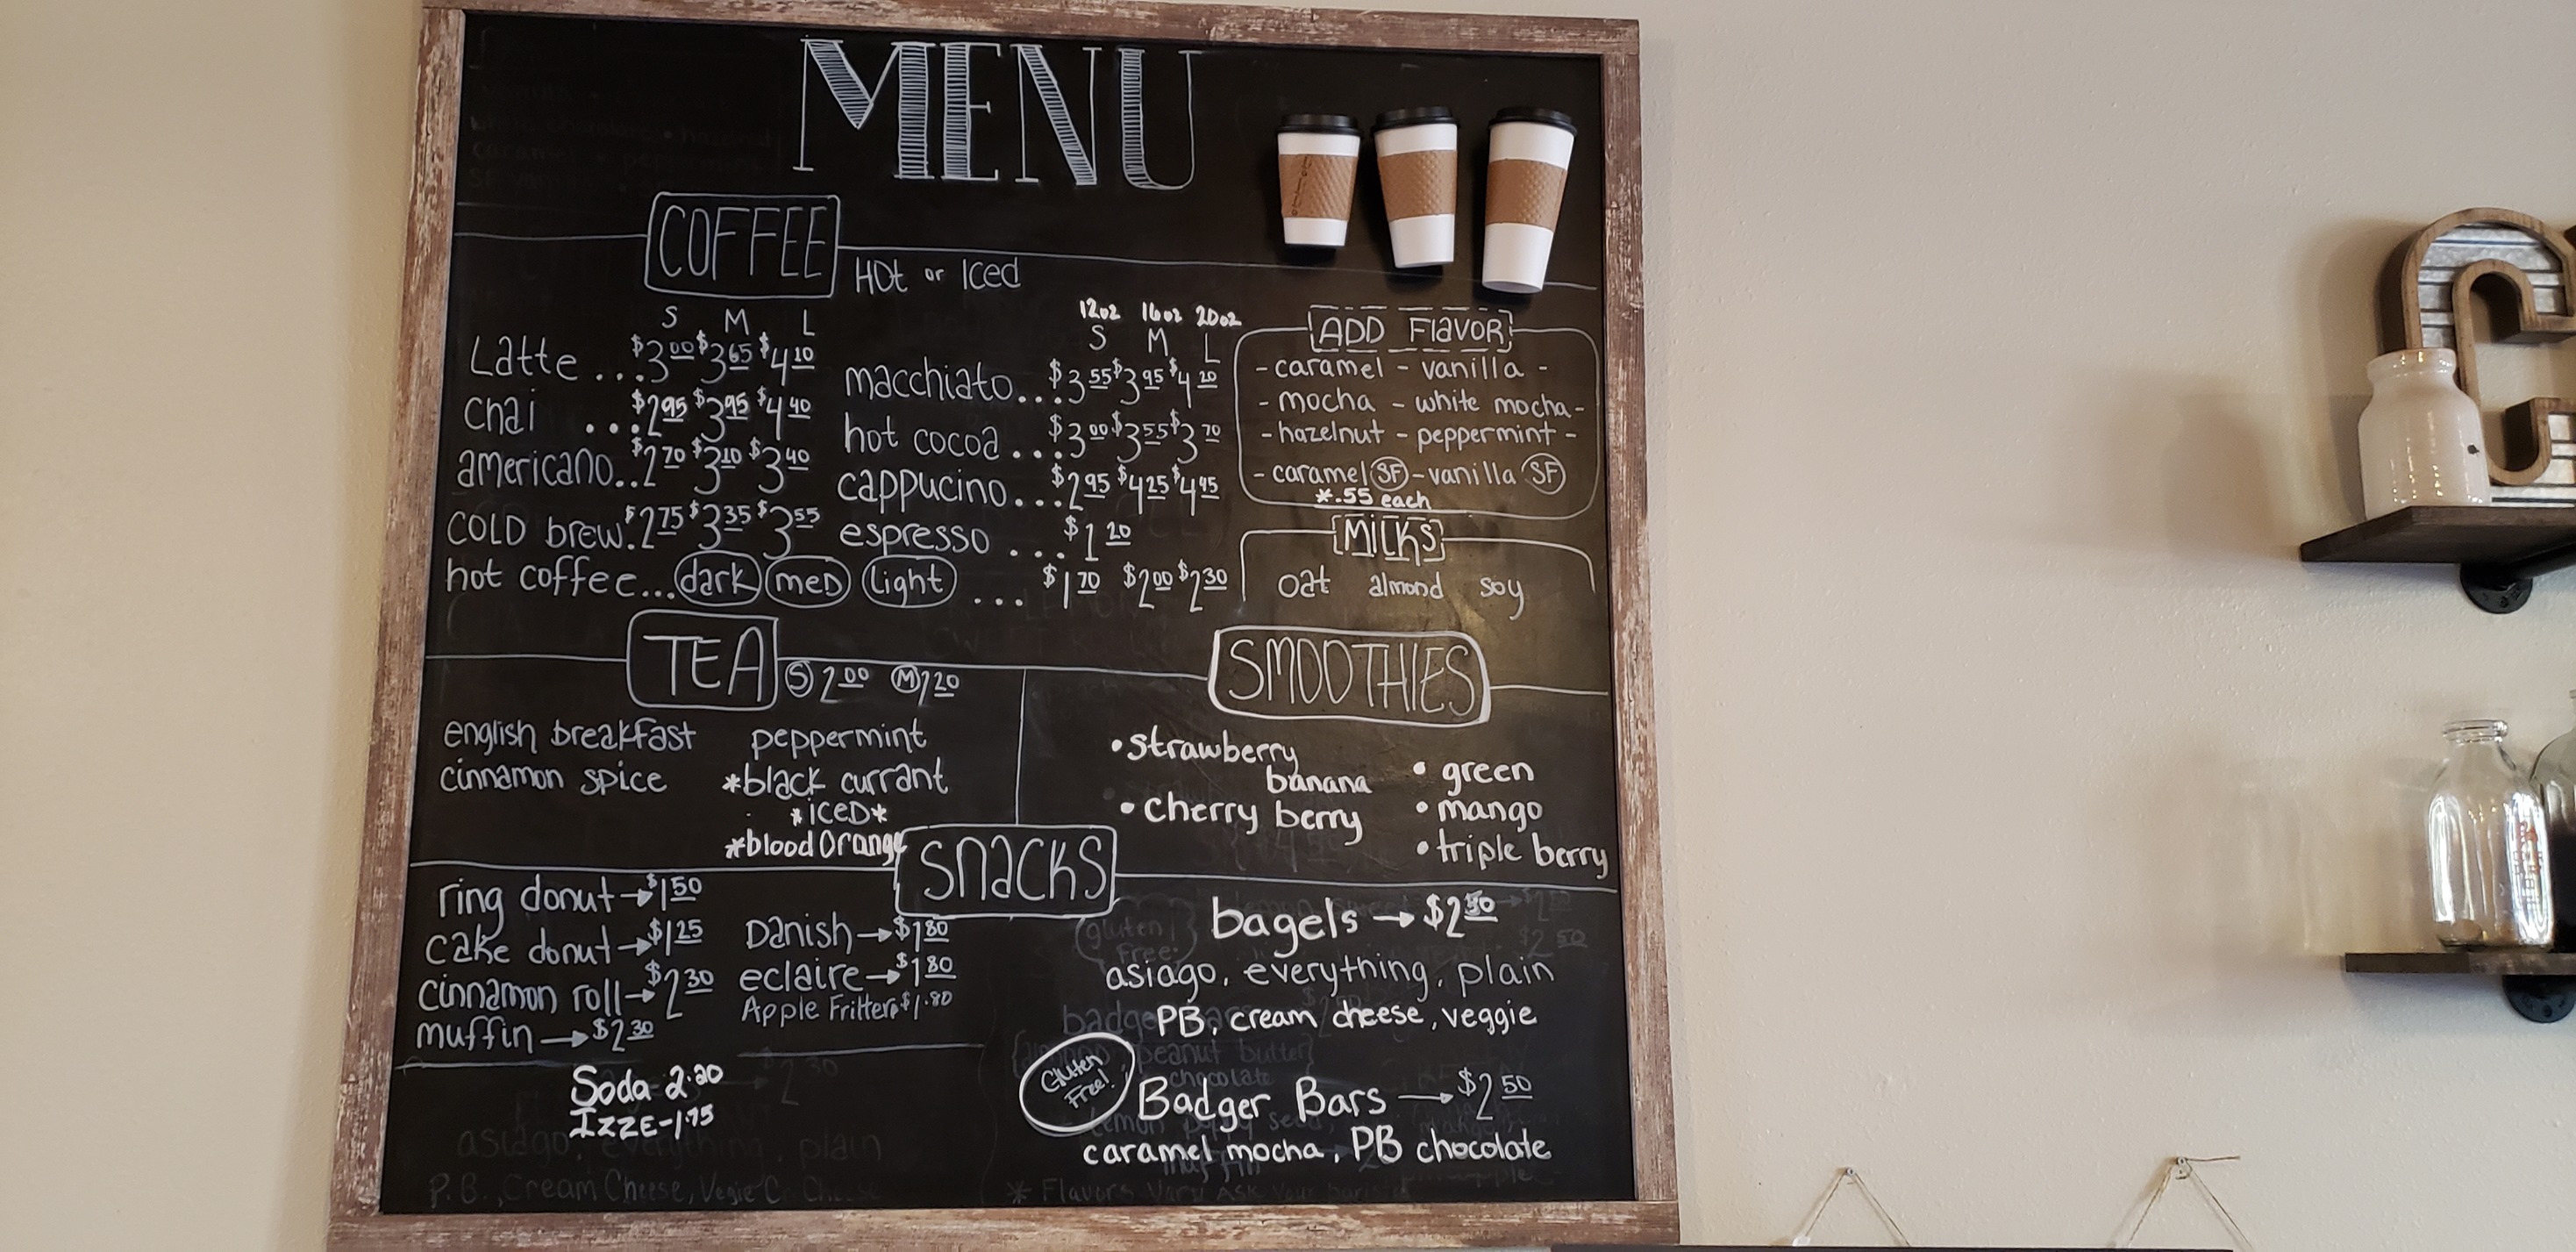 MENU
COFFEE
Hot or Iced
S M L
Latte ... $3.00 $3.65 $4.10
chai ... $2.95 $3.95 $4.40
americano.. $2.70 $3.10 $3.40
COLD brew. $2.75 $3.35 $3.55
12oz 16oz 20oz
S M L
macchiato... $3.55 $3.95 $4.20
hot cocoa ... $3.00 $3.55 $3.70
cappucino... $2.95 $4.25 $4.45
espresso .... $1.20
hot coffee... dark med light ... $1.70 $2.00 $2.30
ADD Flavor
- caramel - vanilla -
- mocha - white mocha -
- hazelnut - peppermint -
- caramel SF - vanilla SF
*.55 each
Milks
oat almond soy
TEA S 2.00 M 2.20
english breakfast
cinnamon spice
peppermint
*black currant
*iced*
*blood Orange
SMOOTHIES
• strawberry
banana
• cherry berry
• green
• mango
• triple berry
SNACKS
ring donut → $1.50
cake donut → $1.25
cinnamon roll → $2.30
muffin → $2.30
Danish → $1.80
eclaire → $1.80
Apple Fritter $1.80
Soda 2.20
IZZE-1.75
bagels → $2.50
asiago, everything, plain
PB, cream cheese, veggie
Gluten
Free!
Badger Bars → $2.50
caramel mocha, PB chocolate
asiago, everything, plain
P.B., Cream Cheese, Vegie
* Flavors Vary Ask Your